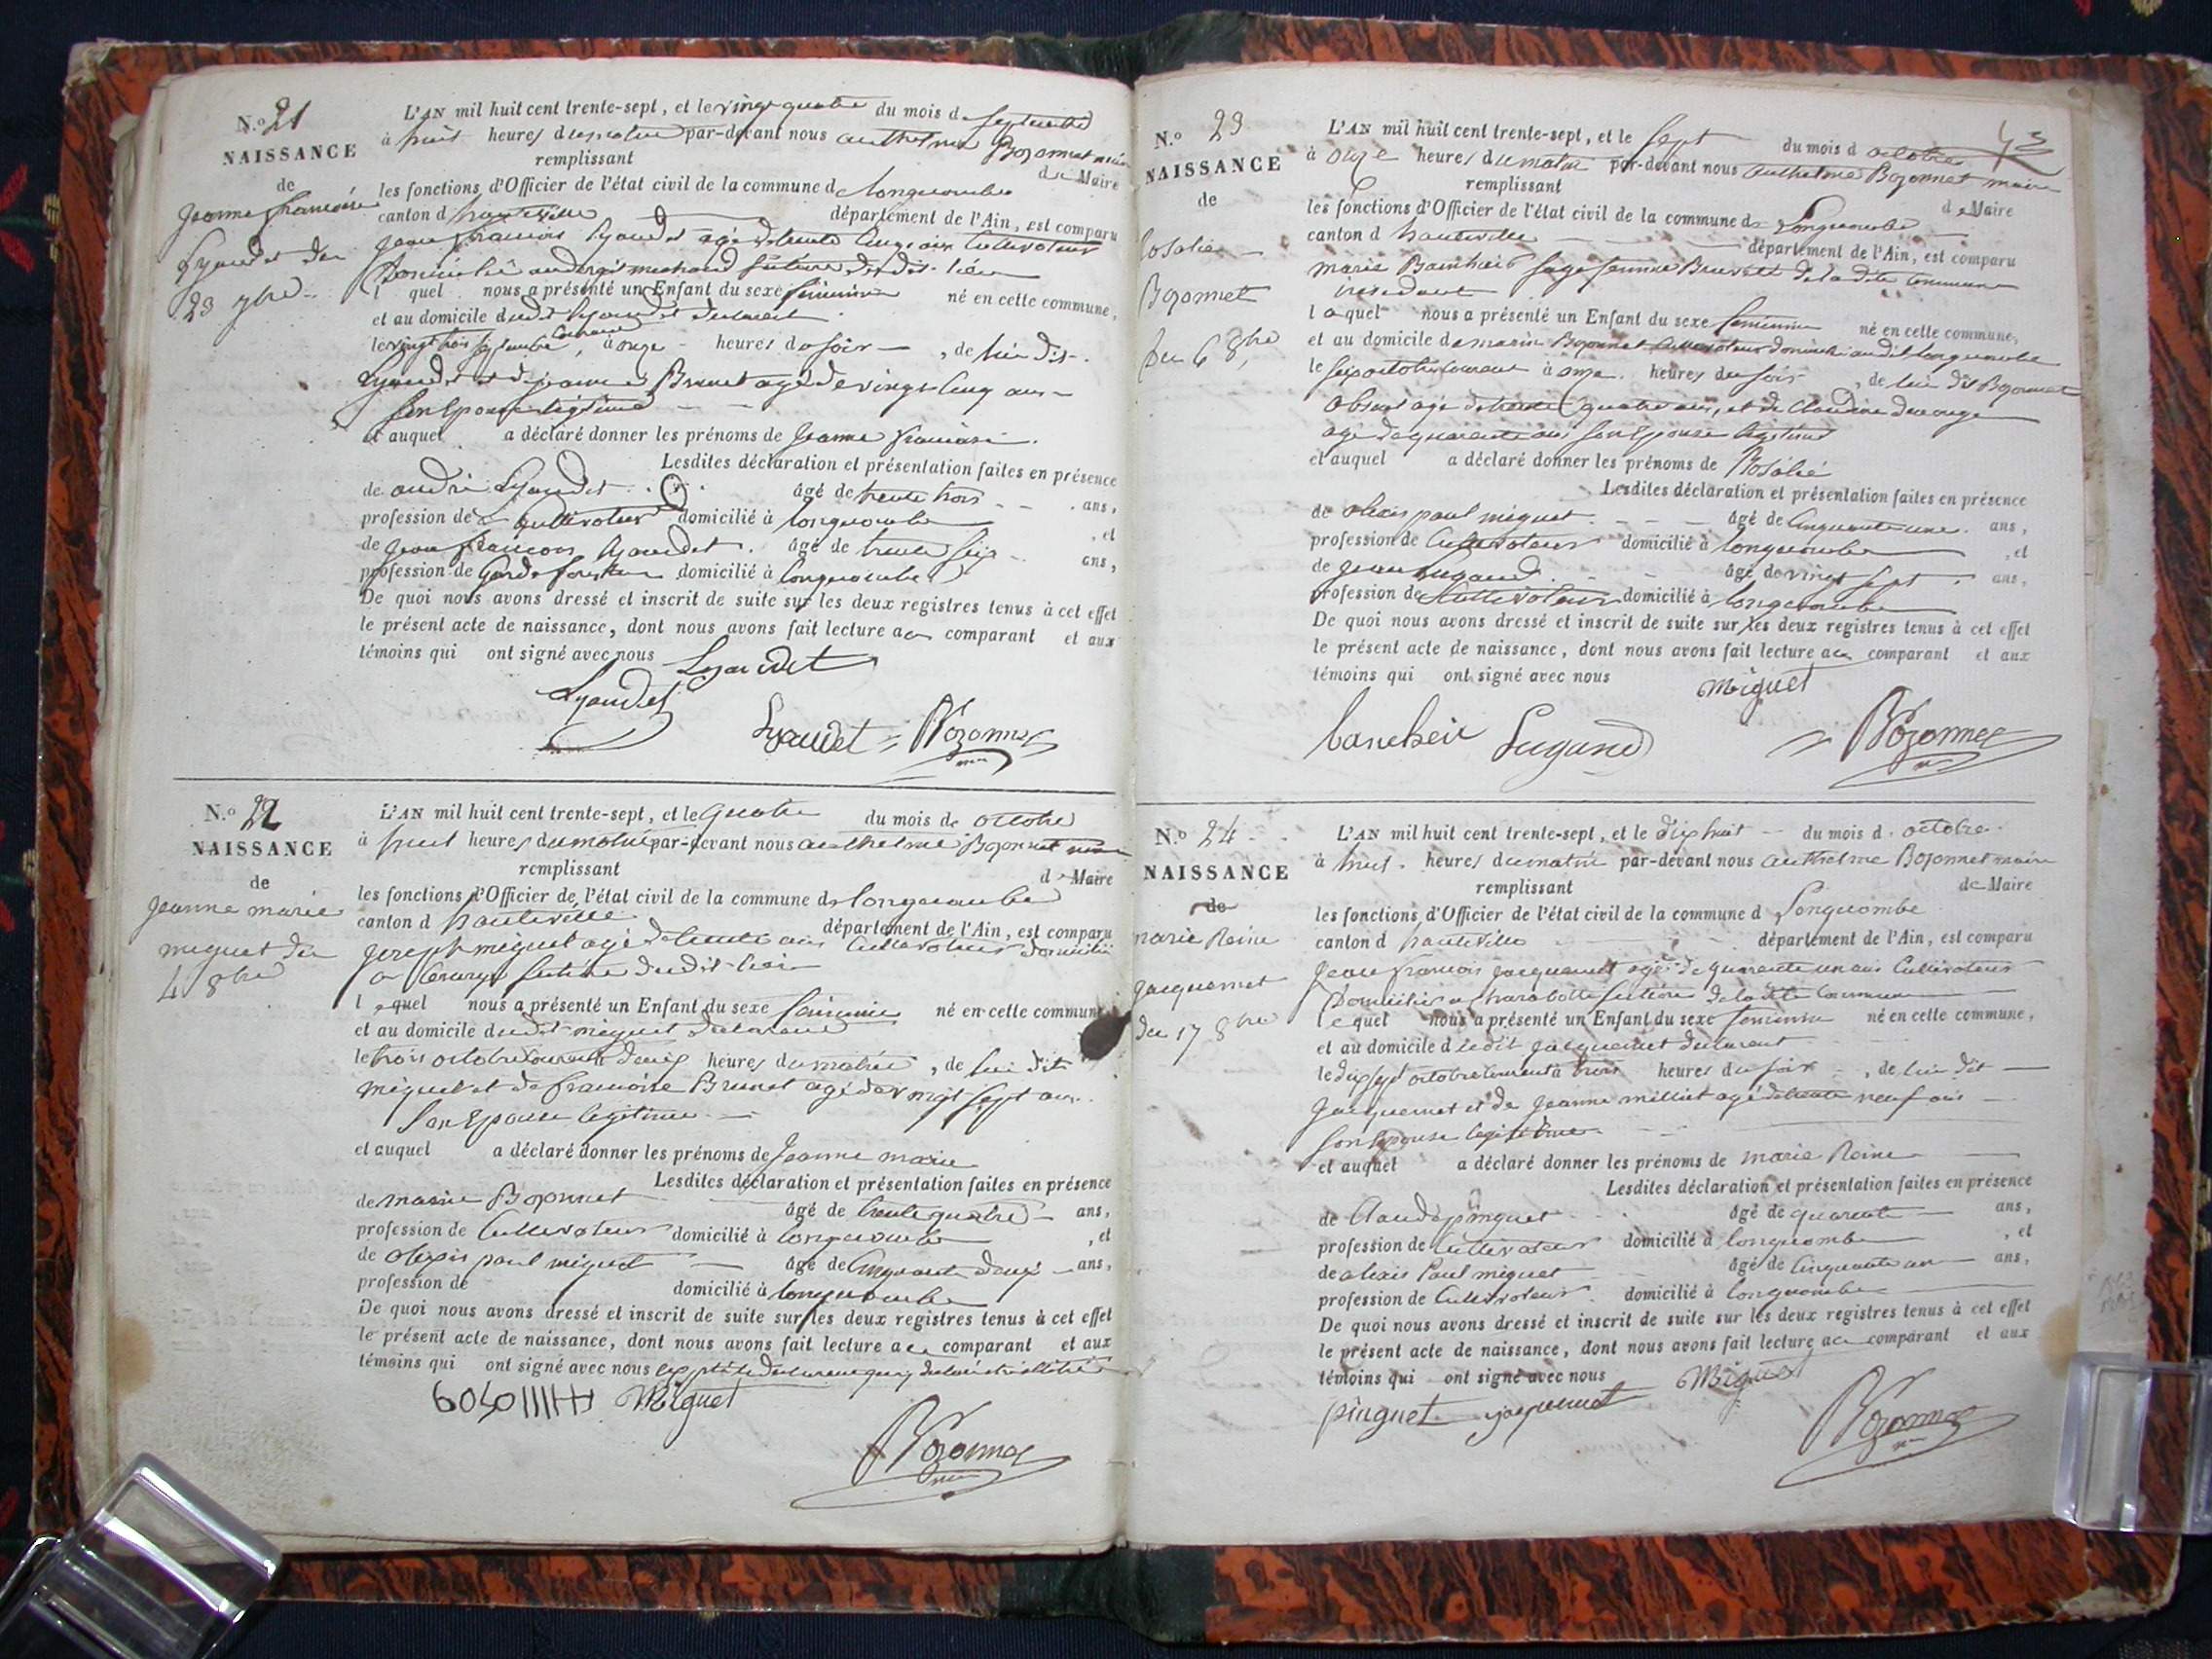 N.o 21
NAISSANCE
de
Jeanne françoise
Lyaudet du
23 7bre
L'AN mil huit cent trente-sept, et le vingt quatre du mois d septembre
à huit heures du matin par-devant nous anthelme Bozonnet maire
remplissant
de Maire
les fonctions d'Officier de l'état civil de la commune de longecombe
canton d hauteville département de l'Ain, est comparu
Jean françois Lyaudet agé de trente cinq ans Cultivateur
Domicilié section dudit lieu
l quel nous a présenté un Enfant du sexe féminin né en cette commune,
et au domicile dudit Lyaudet déclarant
le vingt trois septembre courant, à onze heures du soir, de lui dit
Lyaudet et de jeanne Brunet agé de vingt cinq ans
son Epouse légitime
et auquel a déclaré donner les prénoms de Jeanne françoise.
Lesdites déclaration et présentation faites en présence
de andré Lyaudet âgé de trente trois ans,
profession de cultivateur domicilié à longecombe, et
de jean françois Lyaudet âgé de trente six ans,
profession de Garde forestier domicilié à longecombe
De quoi nous avons dressé et inscrit de suite sur les deux registres tenus à cet effet
le présent acte de naissance, dont nous avons fait lecture au comparant et aux
témoins qui ont signé avec nous Lyaudet
Lyaudet
Lyaudet Bozonnet
N.o 22
NAISSANCE
de
Jeanne marie
miguet du
4 8bre
L'AN mil huit cent trente-sept, et le quatre du mois de octobre
à huit heures du matin par-devant nous anthelme Bozonnet maire
remplissant
de Maire
les fonctions d'Officier de l'état civil de la commune de longecombe
canton d hauteville département de l'Ain, est comparu
joseph miguet agé de trente ans Cultivateur domicilié
a section dudit lieu
l e quel nous a présenté un Enfant du sexe féminin né en cette commune
et au domicile dudit miguet déclarant
le trois octobre courant à deux heures du matin, de lui dit
miguet et de françoise Brunet agé de vingt sept ans
son Epouse légitime
et auquel a déclaré donner les prénoms de Jeanne marie
Lesdites déclaration et présentation faites en présence
de marin Bozonnet âgé de trente quatre ans,
profession de Cultivateur domicilié à longecombe, et
de alexis paul miguet âgé de cinquante deux ans,
profession de domicilié à longecombe
De quoi nous avons dressé et inscrit de suite sur les deux registres tenus à cet effet
le présent acte de naissance, dont nous avons fait lecture au comparant et aux
témoins qui ont signé avec nous excepté le déclarant illitéré
Miguet
Bozonnet
43
N.o 23
NAISSANCE
de
Rosalie
Bozonnet
du 6 8bre
L'AN mil huit cent trente-sept, et le sept du mois d octobre
à onze heures du matin par-devant nous anthelme Bozonnet maire
remplissant
de Maire
les fonctions d'Officier de l'état civil de la commune de Longecombe
canton d hauteville département de l'Ain, est comparu
marie sage femme de la dite commune
y résidant
l a quel nous a présenté un Enfant du sexe féminin né en cette commune,
et au domicile de marin Bozonnet cultivateur domicilié audit longecombe
le six octobre courant à onze heures du soir, de lui dit Bozonnet
absent agé de trente quatre ans, et de Claudine
agé de quarante ans son Epouse légitime
et auquel a déclaré donner les prénoms de Rosalie
Lesdites déclaration et présentation faites en présence
de alexis paul miguet âgé de cinquante une ans,
profession de Cultivateur domicilié à longecombe, et
de jean Lugand âgé de vingt sept ans,
profession de Cultivateur domicilié à longecombe
De quoi nous avons dressé et inscrit de suite sur les deux registres tenus à cet effet
le présent acte de naissance, dont nous avons fait lecture au comparant et aux
témoins qui ont signé avec nous Miguet
Lugand Bozonnet
N.o 24
NAISSANCE
de
marie Reine
jacquemet
du 17 8bre
L'AN mil huit cent trente-sept, et le dix huit du mois d octobre
à huit heures du matin par-devant nous anthelme Bozonnet maire
remplissant
de Maire
les fonctions d'Officier de l'état civil de la commune d Longecombe
canton d hauteville département de l'Ain, est comparu
Jean françois jacquemet agé de quarante un ans Cultivateur
Domicilié a section de la dite commune
l e quel nous a présenté un Enfant du sexe féminin né en cette commune,
et au domicile dudit jacquemet déclarant
le dix sept octobre courant à trois heures du soir, de lui dit
Jacquemet et de jeanne agé de trente neuf ans
son Epouse légitime
et auquel a déclaré donner les prénoms de marie Reine
Lesdites déclaration et présentation faites en présence
de Claude pinguet âgé de quarante ans,
profession de Cultivateur domicilié à longecombe, et
de alexis Paul miguet âgé de cinquante un ans,
profession de Cultivateur domicilié à longecombe
De quoi nous avons dressé et inscrit de suite sur les deux registres tenus à cet effet
le présent acte de naissance, dont nous avons fait lecture au comparant et aux
témoins qui ont signé avec nous Miguet
pinguet jacquemet
Bozonnet